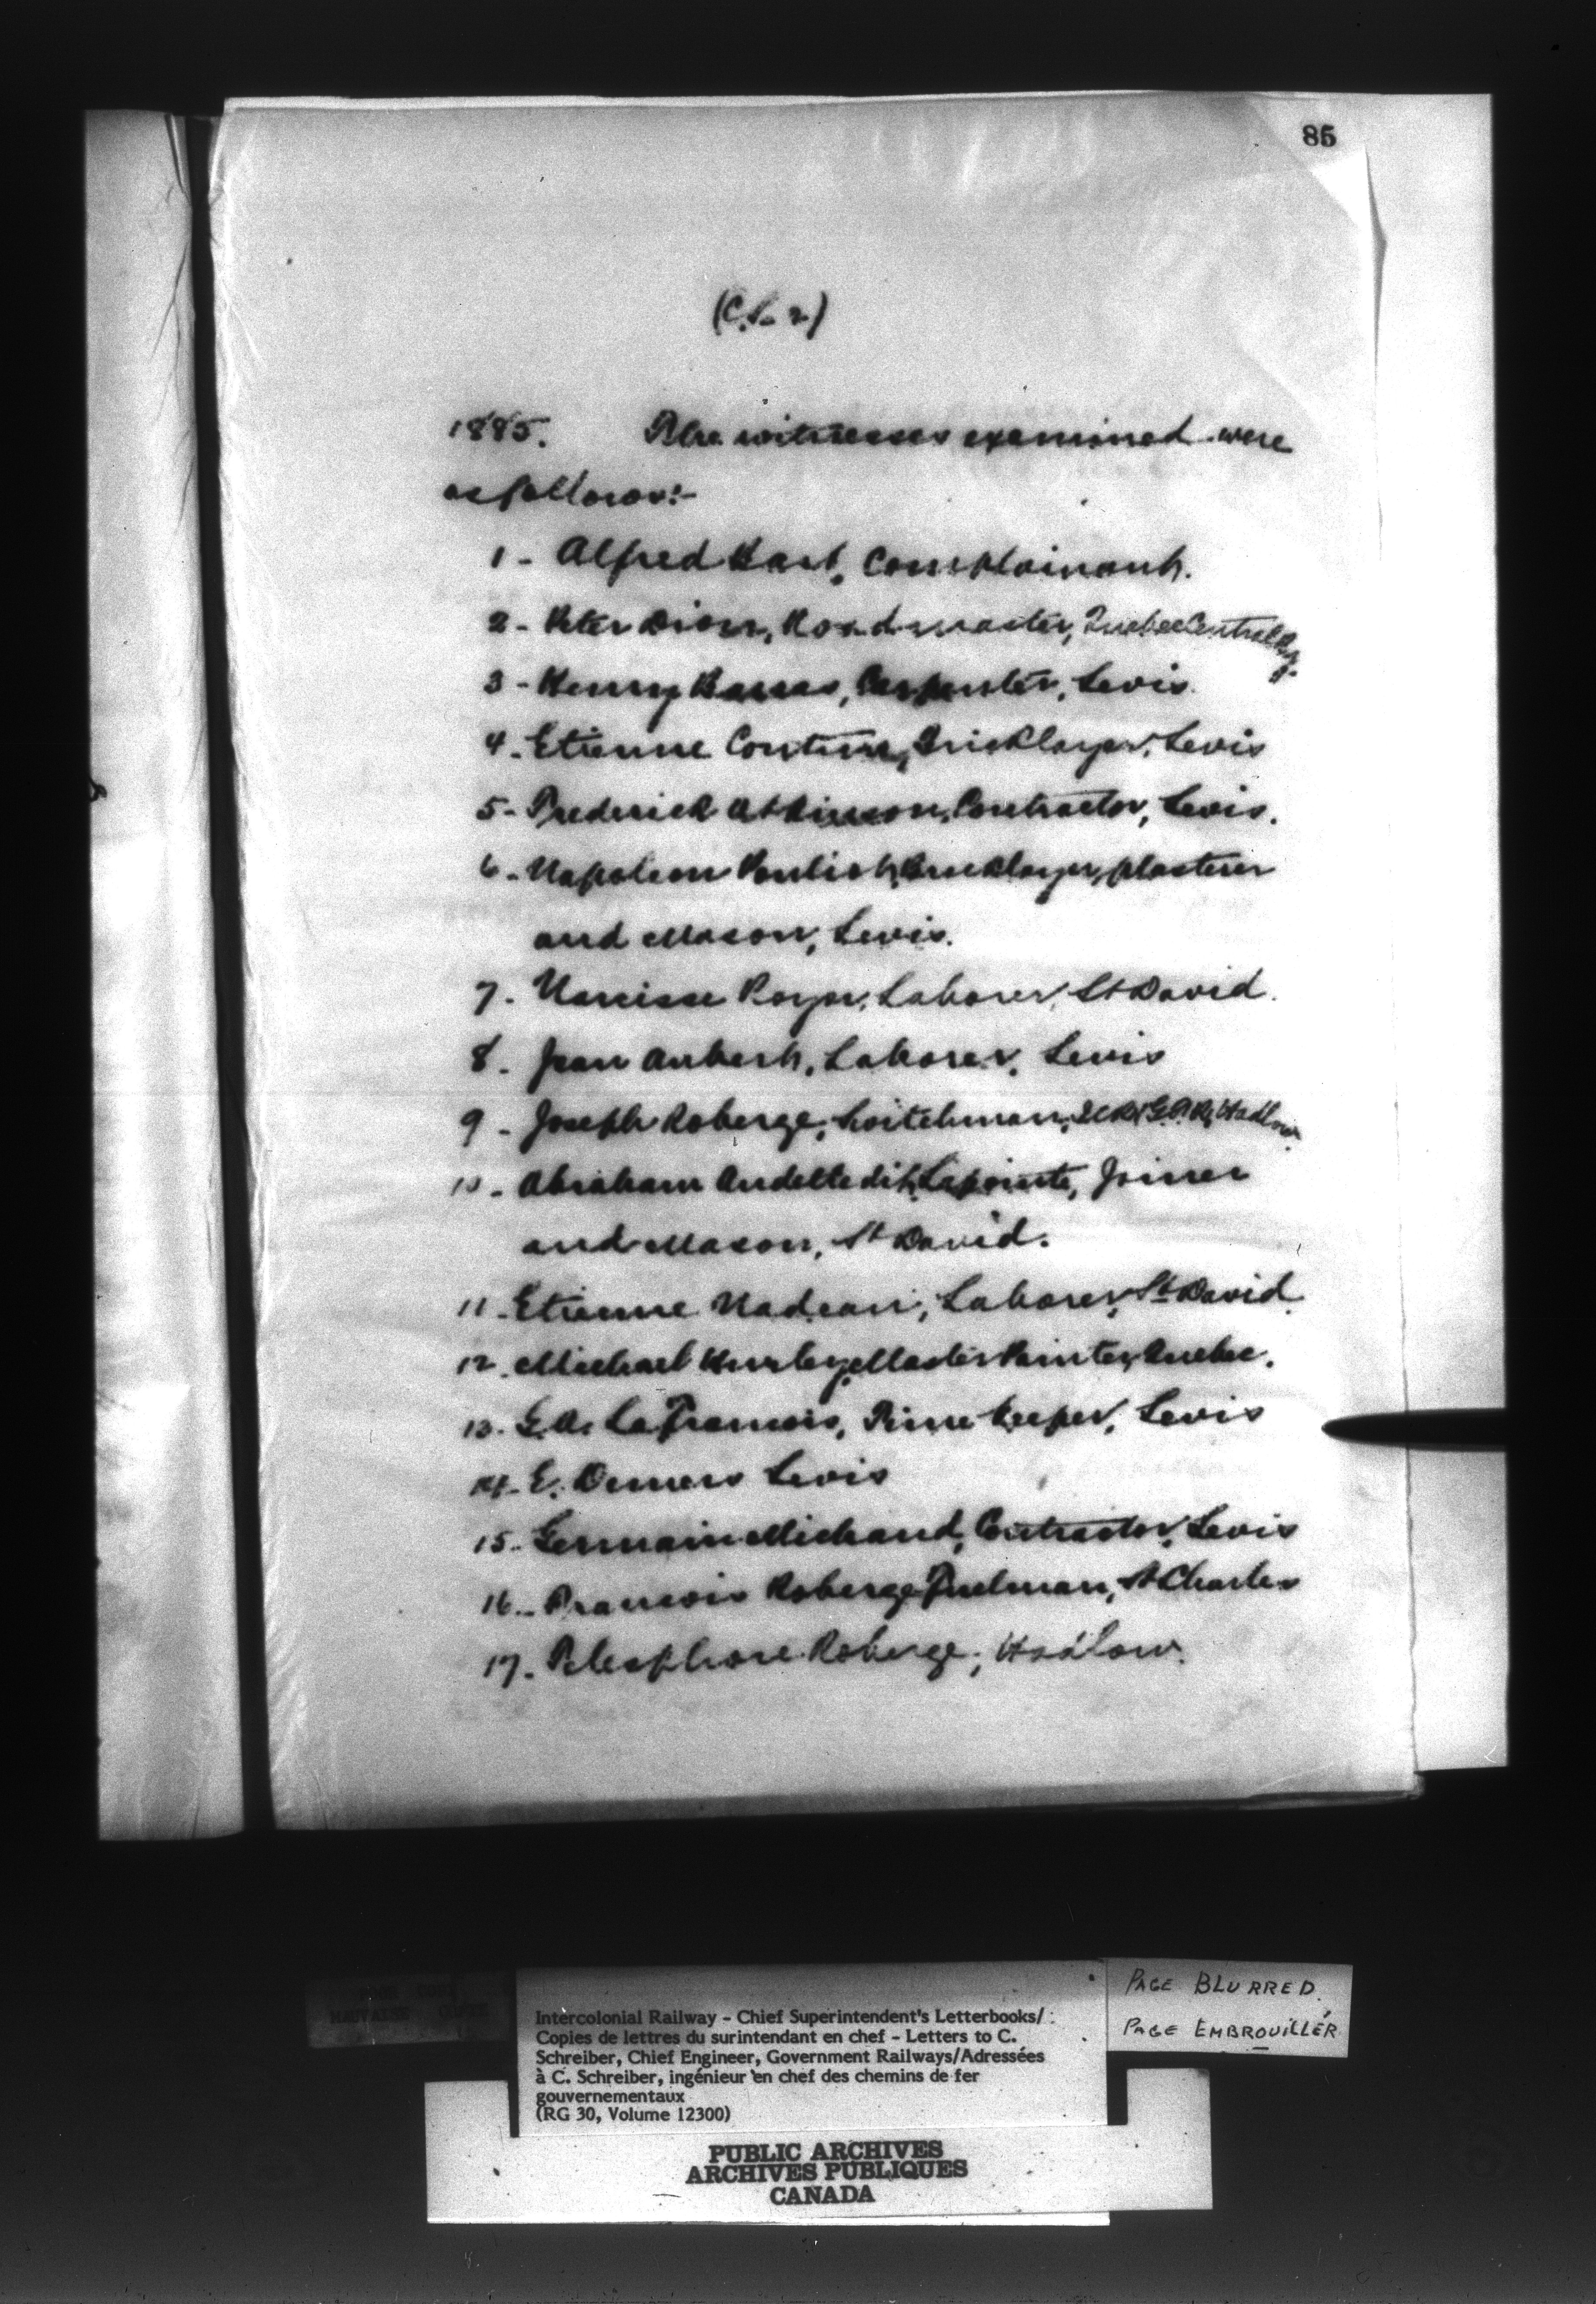 85
(C.S. 2)
1885. The witnesses examined were
as follows:-
1 - Alfred Hart, Complainant.
2 - Peter Dion, Roadmaster, Quebec Central Ry.
3 - Henry Carpenter, Levis.
4 - Etienne Couture, Bricklayer, Levis
5 - Frederick Atkinson, Contractor, Levis.
6 - Napoleon Pouliot, Bricklayer, plasterer
and Mason, Levis.
7 - Narcisse Royer, Laborer, St David.
8 - Jean Aubert, Laborer, Levis
9 - Joseph Roberge, Switchman, Hadlow
10 - Abraham Audette dit Lapointe, Joiner
and Mason, St David.
11 - Etienne Nadeau, Laborer, St David.
12 - Michael Hurley, Master Painter, Quebec.
13 - G.A. LaFrancois, Time keeper, Levis
14 - E. Demers Levis
15 - Germain Michaud, Contractor, Levis
16 - Francois Roberge Fuelman, St Charles
17 - Telesphore Roberge, Hadlow.
PAGE BLURRED.
PAGE EMBROUILLÉR
Intercolonial Railway - Chief Superintendent's Letterbooks/
Copies de lettres du surintendant en chef - Letters to C.
Schreiber, Chief Engineer, Government Railways/Adressées
à C. Schreiber, ingénieur en chef des chemins de fer
gouvernementaux
(RG 30, Volume 12300)
PUBLIC ARCHIVES
ARCHIVES PUBLIQUES
CANADA